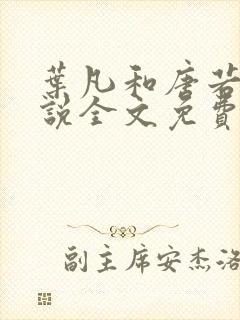 葉凡和唐若
說全文免費
副主席安杰洛